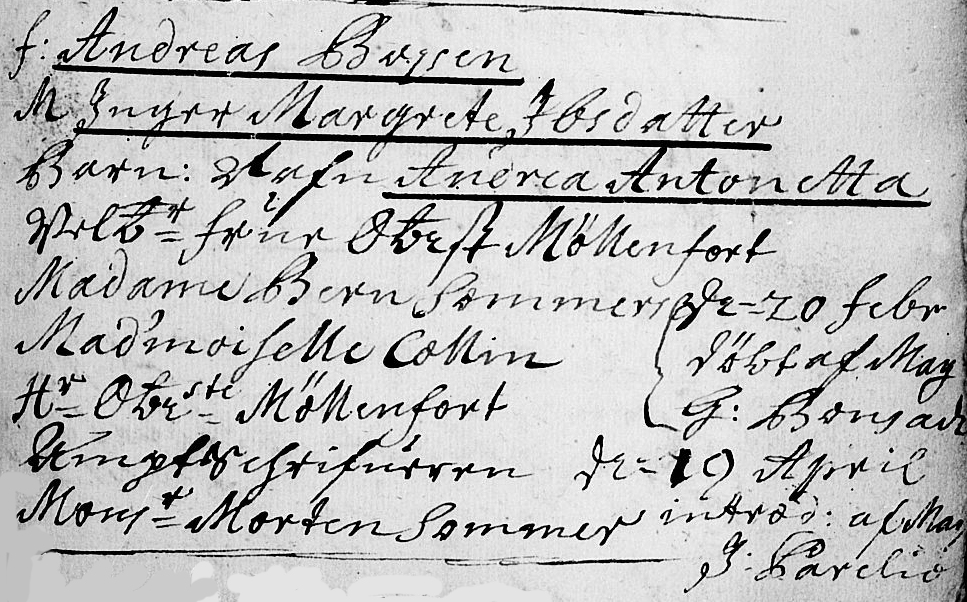 f: Andreas Boysen
M Inger Margrete Ibsdatter
Barn: Nafn Andrea Antonetta
Velbr frue Obrist Möllenfort
Madame Bern Sommers
Mad'moiselle Collin
Hr Obrste Möllenfort
Ampts Schrifueren
Monsr Morten Sommer
de 20 febr
döbt af Mag
G:
de 19 April
introd: af Mag